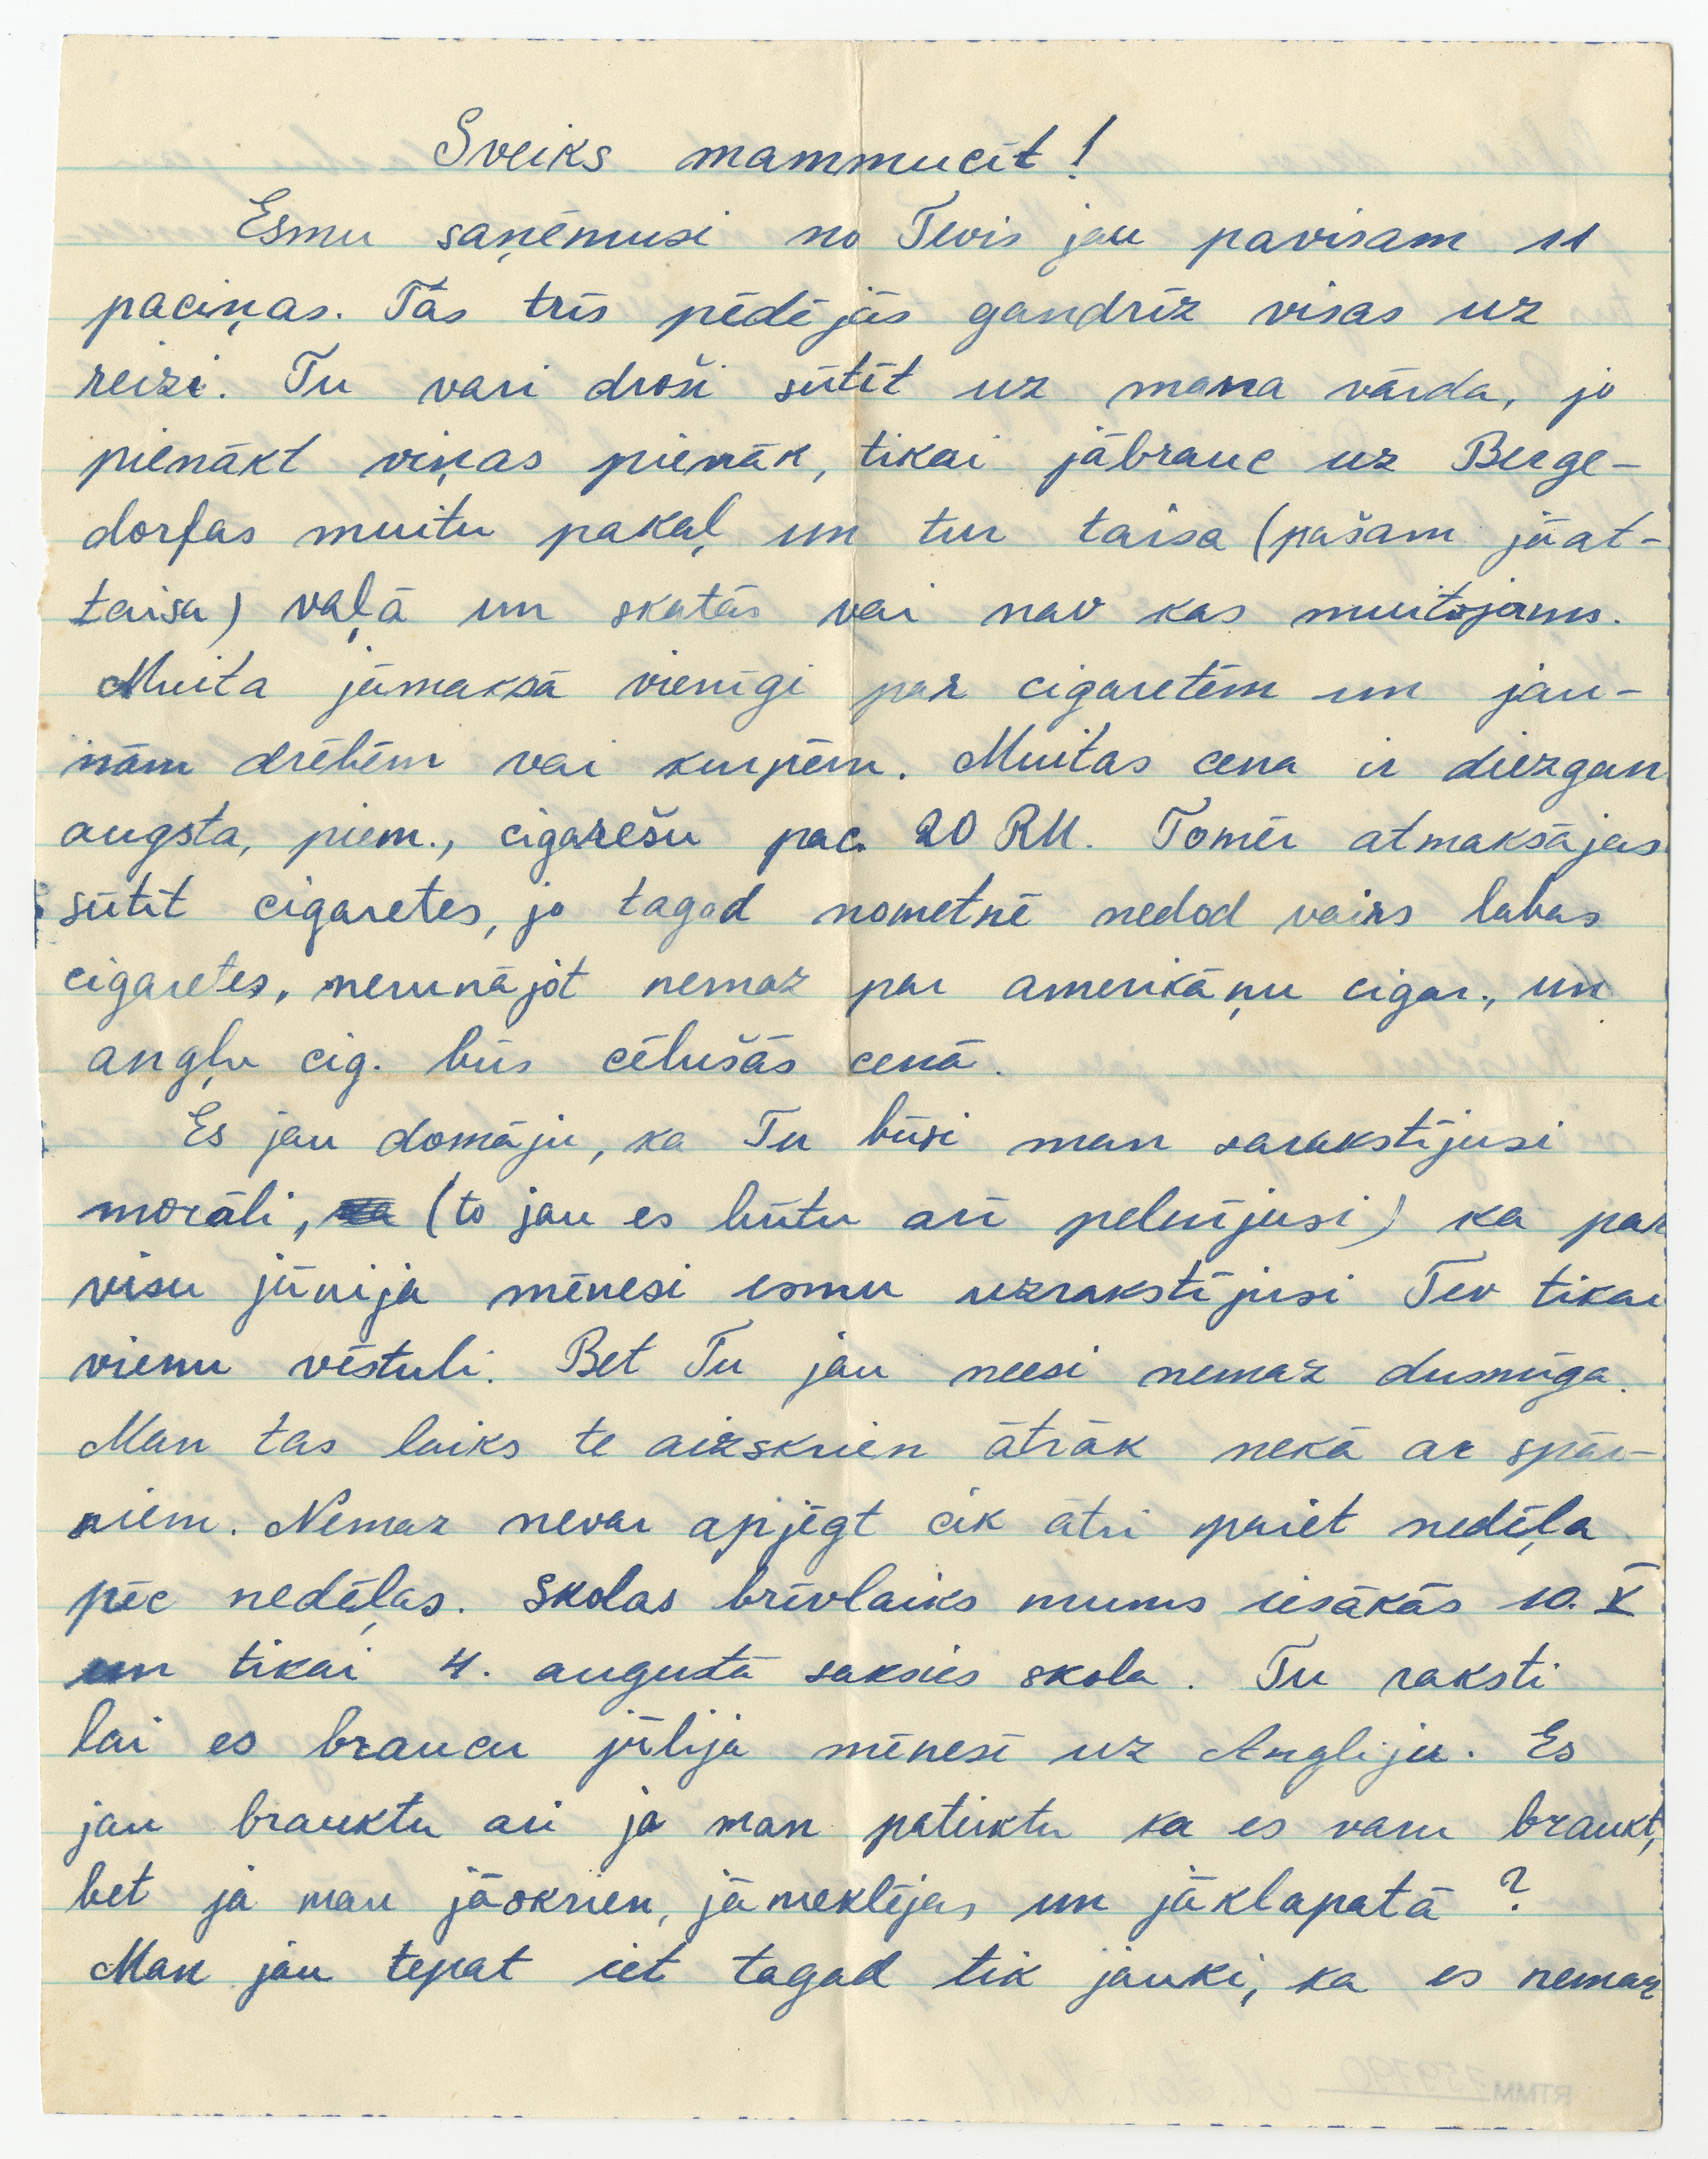 Sveiks mammucīt!
Esmu saņēmusi no Tevis jau pavisam 11
paciņas. Tās trīs pēdējās gandrīz visas uz
reizi. Tu vari droši sūtīt uz mana vārda, jo
pienākt viņas pienāk, tikai jābrauc uz Berge-
dorfas muitu pakaļ un tur taisa (pašam jāat-
taisa) vaļā un skatās vai nav kas muitojams.
Muita jāmaksā vienīgi par cigaretēm un jau-
nām drēbēm vai kurpēm. Muitas cena ir diezgan
augsta, piem., cigarešu pac. 20 RM. Tomēr atmaksājas
sūtīt cigaretes, jo tagad nometnē nedod vairs labas
cigaretes, nerunājot nemaz par amerikāņu cigar., un
angļu cig. būs cēlušās cenā.
Es jau domāju, ka Tu būsi man sarakstījusi
morāli, (to jau es būtu arī pelnījusi) ka par
visu jūnija mēnesi esmu uzrakstījusi Tev tikai
vienu vēstuli. Bet Tu jau neesi nemaz dusmīga.
Man tas laiks te aizskrien ātrāk nekā ar spār-
niem. Nemaz nevar apjēgt cik ātri paiet nedēļa
pēc nedēļas. Skolas brīvlaiks mums iesākās 10. V
un tikai 4. augustā saksies skola. Tu raksti
lai es braucu jūlija mēnesī uz Angliju. Es
jau brauktu arī ja man pateiktu ka es varu braukt,
bet ja man jāskrien, jāmeklējas un jāklapatā?
Man jau tepat iet tagad tik jauki, ka es nemaz